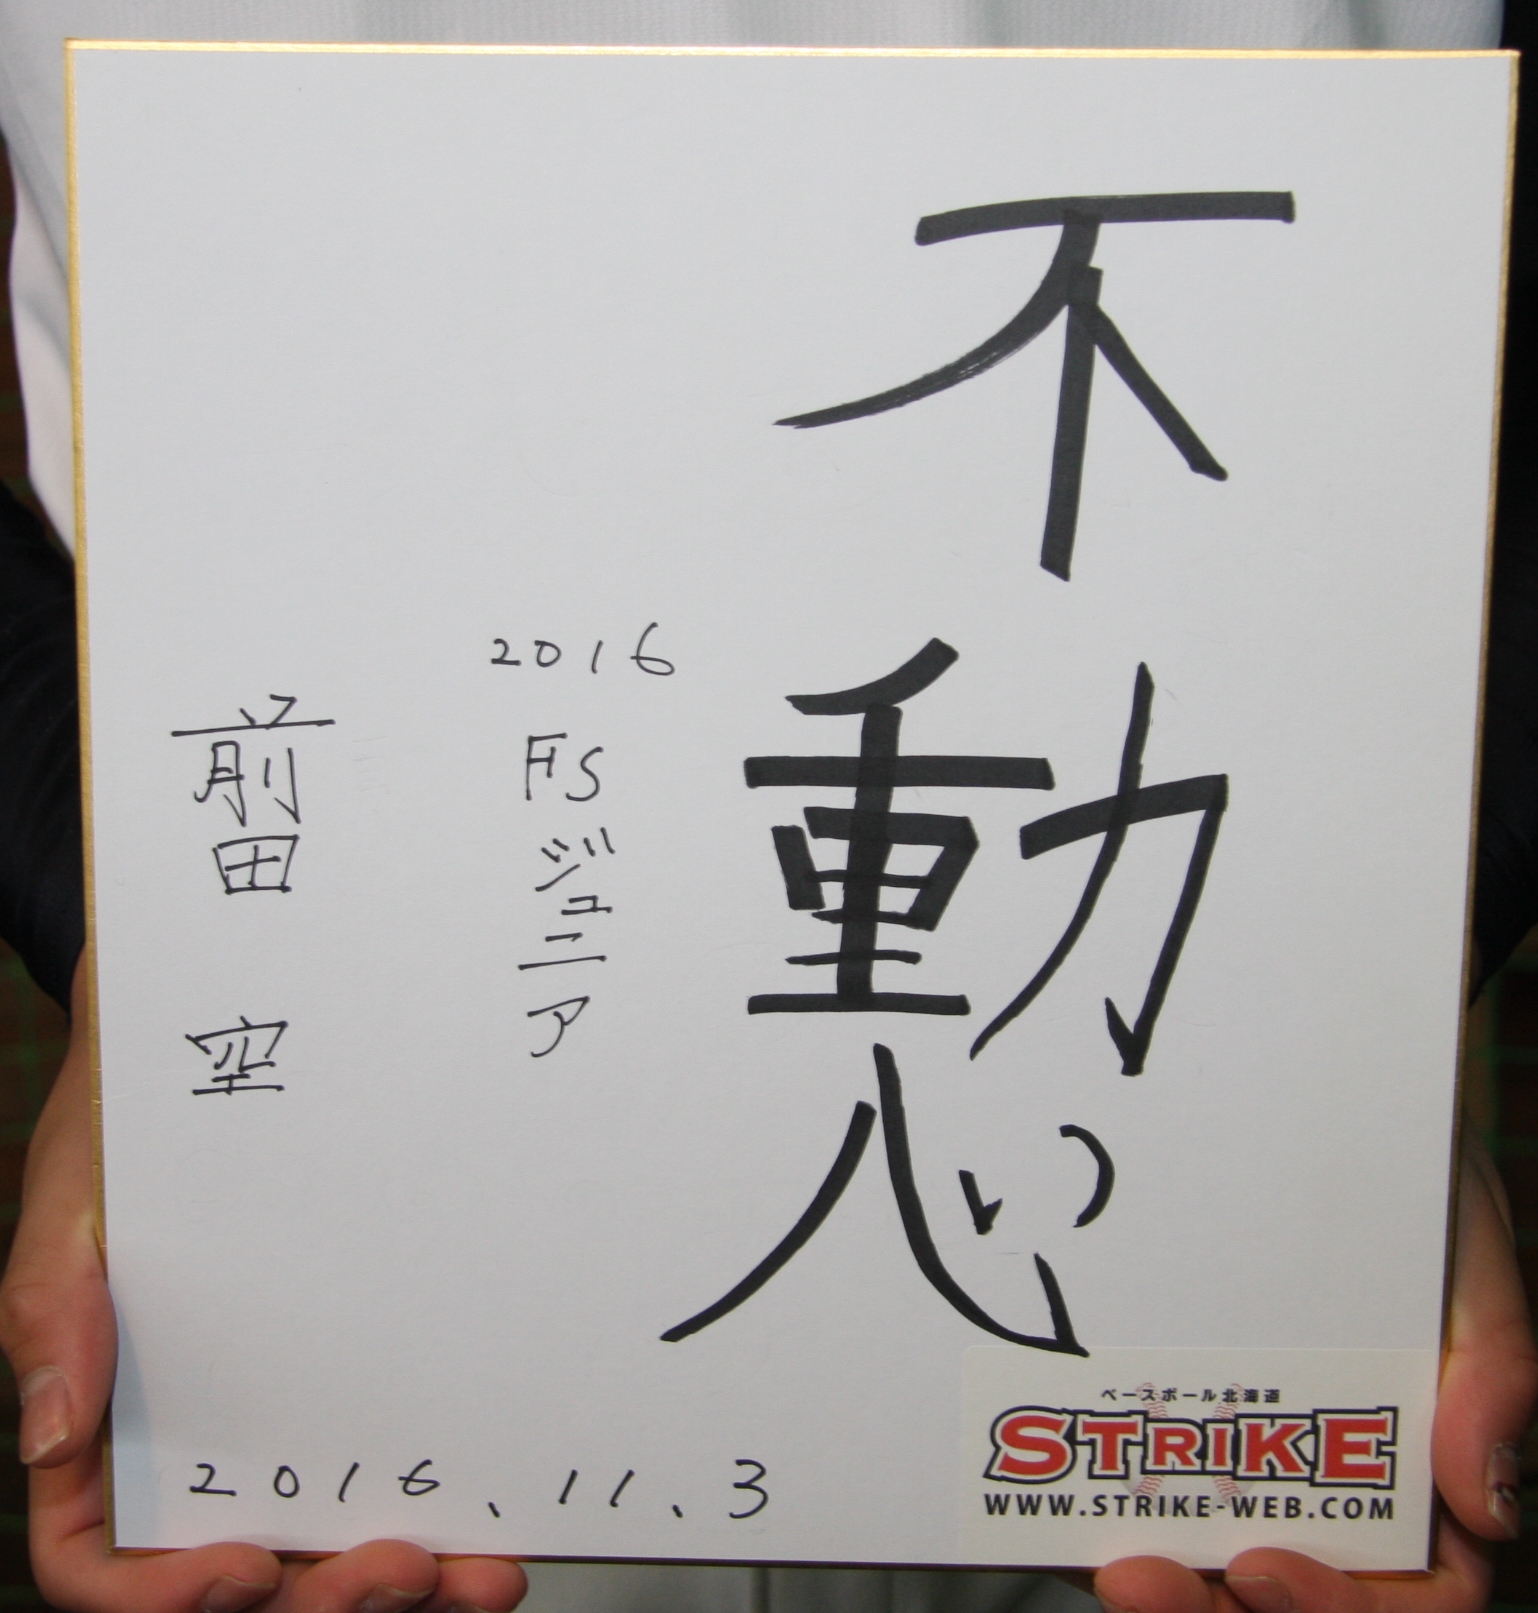 不動心
2016
FSジュニア
前田 空
2016.11.3
ベースボール北海道
STRIKE
WWW.STRIKE-WEB.COM